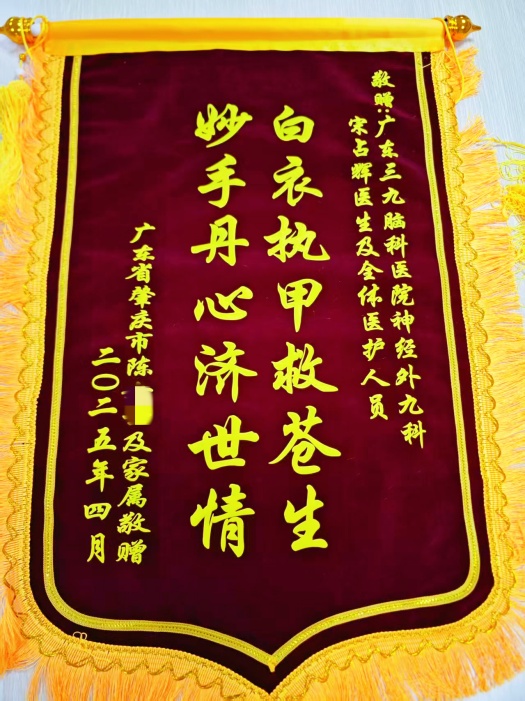 敬赠：广东三九脑科医院神经外九科
宋占辉医生及全体医护人员
白衣执甲救苍生
妙手丹心济世情
广东省肇庆市陈 及家属敬赠
二〇二五年四月